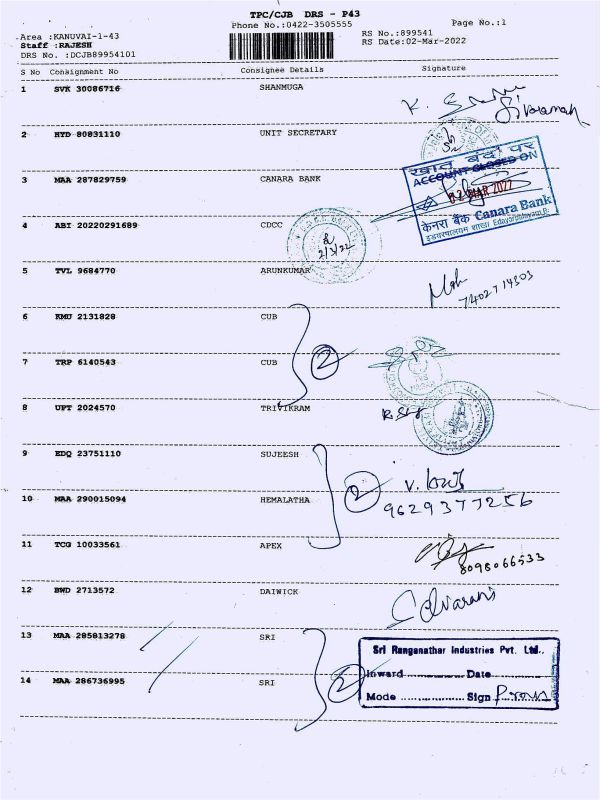 TPC/CJB DRS - P43
Phone No.:0422-3505555
Page No.:1
Area :KANUVAI-1-43
RS No.:899541
Staff :RAJESH
RS Date:02-Mar-2022
DRS No. :DCJB89954101
S No Consignment No Consignee Details Signature
1 SVK 30086716 SHANMUGA
K.
Sivaramah
2 HYD 80831110 UNIT SECRETARY
खाता बंदी पर
ACCOUNT CLOSED ON
3 MAA 287829759 CANARA BANK
02 MAR 2022
केनरा बैंक Canara Bank
4 ABI 20220291689 CDCC
2/3/22
5 TVL 9684770 ARUNKUMAR
7402714303
6 KMU 2131828 CUB
2
7 TRP 6140543 CUB
8 UPT 2024570 TRIVIKRAM
9 EDQ 23751110 SUJEESH
V.
2
10 MAA 290015094 HEMALATHA
9629377256
11 TCG 10033561 APEX
8098066533
12 BWD 2713572 DAIWICK
Selvarani
13 MAA 285813278 SRI
Sri Ranganathar Industries Pvt. Ltd.,
Inward Date
14 MAA 286736995 SRI
2
Mode Sign